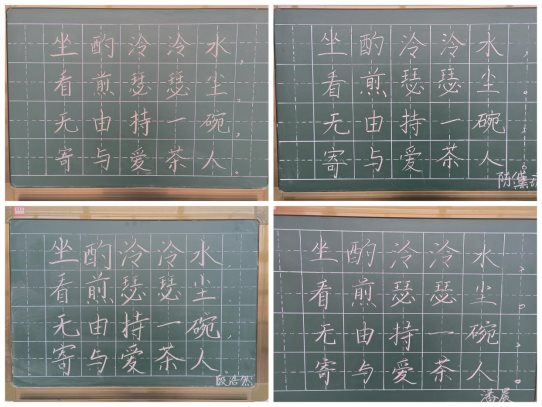 坐酌泠泠水,
看煎瑟瑟尘。
无由持一碗,
寄与爱茶人。
坐酌泠泠水,
看煎瑟瑟尘。
无由持一碗,
寄与爱茶人。
坐酌泠泠水,
看煎瑟瑟尘.
无由持一碗,
寄与爱茶人.
坐酌泠泠水,
看煎瑟瑟尘。
无由持一碗,
寄与爱茶人。
潘晨